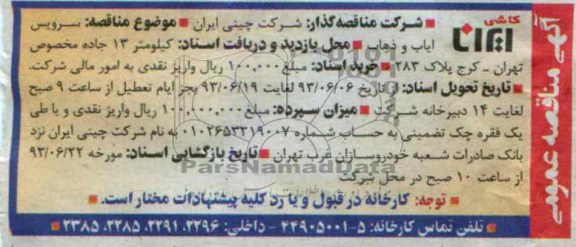 آگهی مناقصه عمومی
کاشی ایرانا
■ شرکت مناقصه‌گذار: شرکت چینی ایران ■ موضوع مناقصه: سرویس
ایاب و ذهاب ■ محل بازدید و دریافت اسناد: کیلومتر ۱۳ جاده مخصوص
تهران ـ کرج پلاک ۲۸۳ ■ خرید اسناد: مبلغ ۱۰۰,۰۰۰ ریال واریز نقدی به امور مالی شرکت.
■ تاریخ تحویل اسناد: از تاریخ ۹۳/۰۶/۰۶ لغایت ۹۳/۰۶/۱۹ بجز ایام تعطیل از ساعت ۹ صبح
لغایت ۱۴ دبیرخانه شرکت ■ میزان سپرده: مبلغ ۱۰۰,۰۰۰,۰۰۰ ریال واریز نقدی و یا طی
یک فقره چک تضمینی به حساب شماره ۰۱۰۲۶۵۳۳۱۹۰۰۷ به نام شرکت چینی ایران نزد
بانک صادرات شعبه خودروسازان غرب تهران ■ تاریخ بازگشایی اسناد: مورخه ۹۳/۰۶/۲۲
از ساعت ۱۰ صبح در محل شرکت
ParsNamadData
■ توجه: کارخانه در قبول و یا رد کلیه پیشنهادات مختار است. ■
■ تلفن تماس کارخانه: ۵-۴۴۹۰۵۰۰۱ - داخلی: ۲۲۹۶، ۲۲۹۱، ۲۲۸۵، ۲۳۸۵ ■